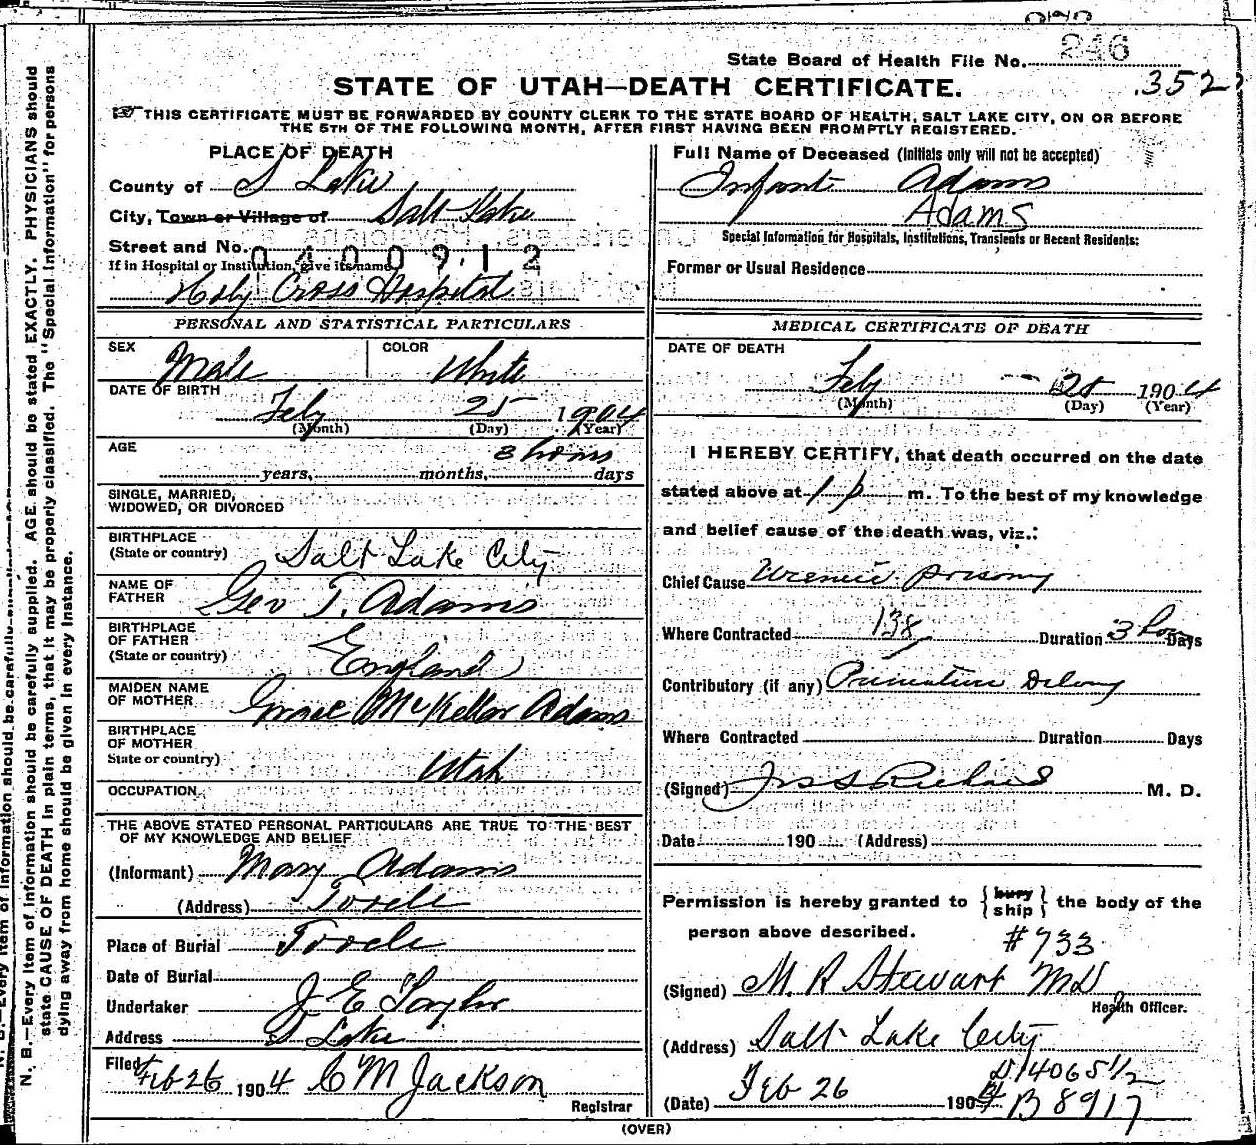 State Board of Health File No. 246
STATE OF UTAH—DEATH CERTIFICATE.
352
THIS CERTIFICATE MUST BE FORWARDED BY COUNTY CLERK TO THE STATE BOARD OF HEALTH, SALT LAKE CITY, ON OR BEFORE
THE 5TH OF THE FOLLOWING MONTH, AFTER FIRST HAVING BEEN PROMPTLY REGISTERED.
PLACE OF DEATH
County of S Lake
City, Town or Village of Salt Lake
Street and No.
0400912
If in Hospital or Institution, give its name
Holy Cross Hospital
PERSONAL AND STATISTICAL PARTICULARS
SEX Male COLOR White
DATE OF BIRTH
Feby 25 1904
(Month) (Day) (Year)
AGE 3 hours
years, months, days
SINGLE, MARRIED,
WIDOWED, OR DIVORCED
BIRTHPLACE
(State or country) Salt Lake City
NAME OF
FATHER Geo T. Adams
BIRTHPLACE
OF FATHER
(State or country) England
MAIDEN NAME
OF MOTHER Grace McKellar Adams
BIRTHPLACE
OF MOTHER
State or country) Utah
OCCUPATION
THE ABOVE STATED PERSONAL PARTICULARS ARE TRUE TO THE BEST
OF MY KNOWLEDGE AND BELIEF
(Informant) Mary Adams
(Address) Tooele
Place of Burial Tooele
Date of Burial
Undertaker J E Taylor
Address S Lake
Filed Feb 26 1904 C M Jackson
Registrar
Full Name of Deceased (Initials only will not be accepted)
Infant Adams
Adams
Special Information for Hospitals, Institutions, Transients or Recent Residents:
Former or Usual Residence
MEDICAL CERTIFICATE OF DEATH
DATE OF DEATH
Feby 25 1904
(Month) (Day) (Year)
I HEREBY CERTIFY, that death occurred on the date
stated above at 1 p m. To the best of my knowledge
and belief cause of the death was, viz.:
Chief Cause Uremic
Where Contracted 138 Duration 3 hours Days
Contributory (if any)
Where Contracted Duration Days
(Signed) Jos S Richards M. D.
Date 190 (Address)
Permission is hereby granted to {bury ship} the body of the
person above described.
#733
(Signed) M. R Stewart MD
Health Officer.
(Address) Salt Lake City
D14065 1/2
(Date) Feb 26 1904 B 8917
(OVER)
N. B.—Every item of information should be carefully supplied. AGE should be stated EXACTLY. PHYSICIANS should
state CAUSE OF DEATH in plain terms, that it may be properly classified. The "Special Information" for persons
dying away from home should be given in every instance.